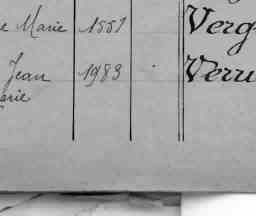 e Marie 1551 Verg
Jean 1983 Verru
arie